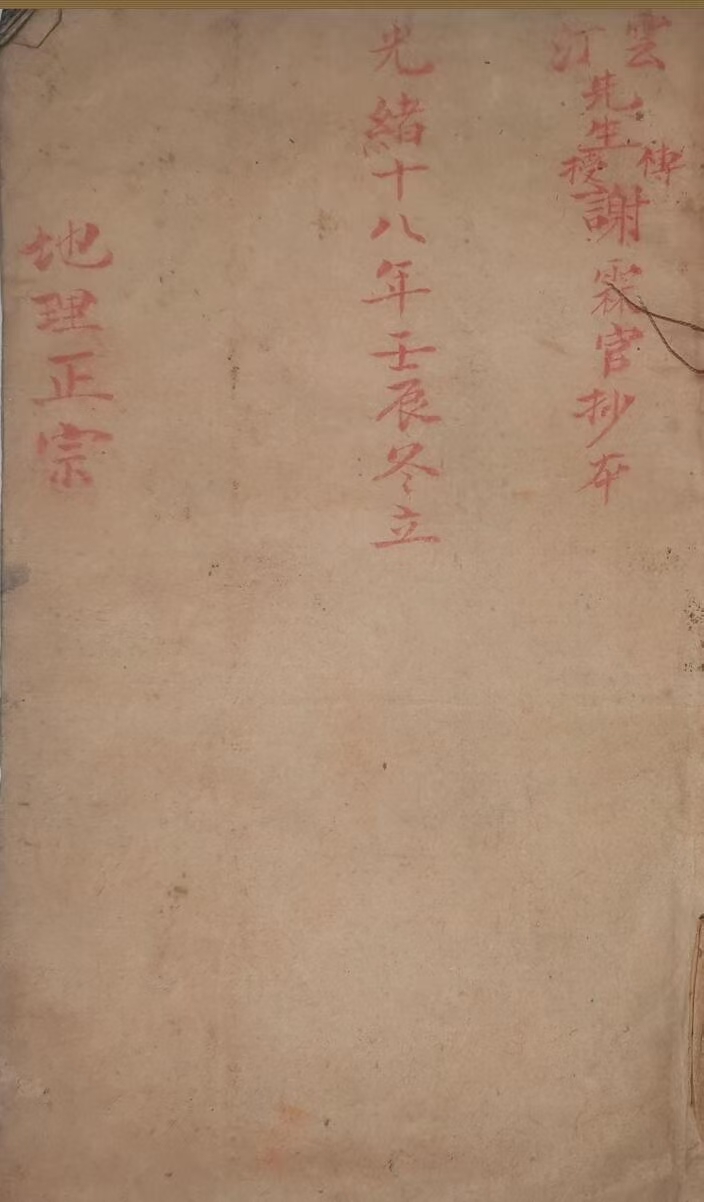 雲汀先生傳授謝霖官抄本
光緒十八年壬辰冬立
地理正宗